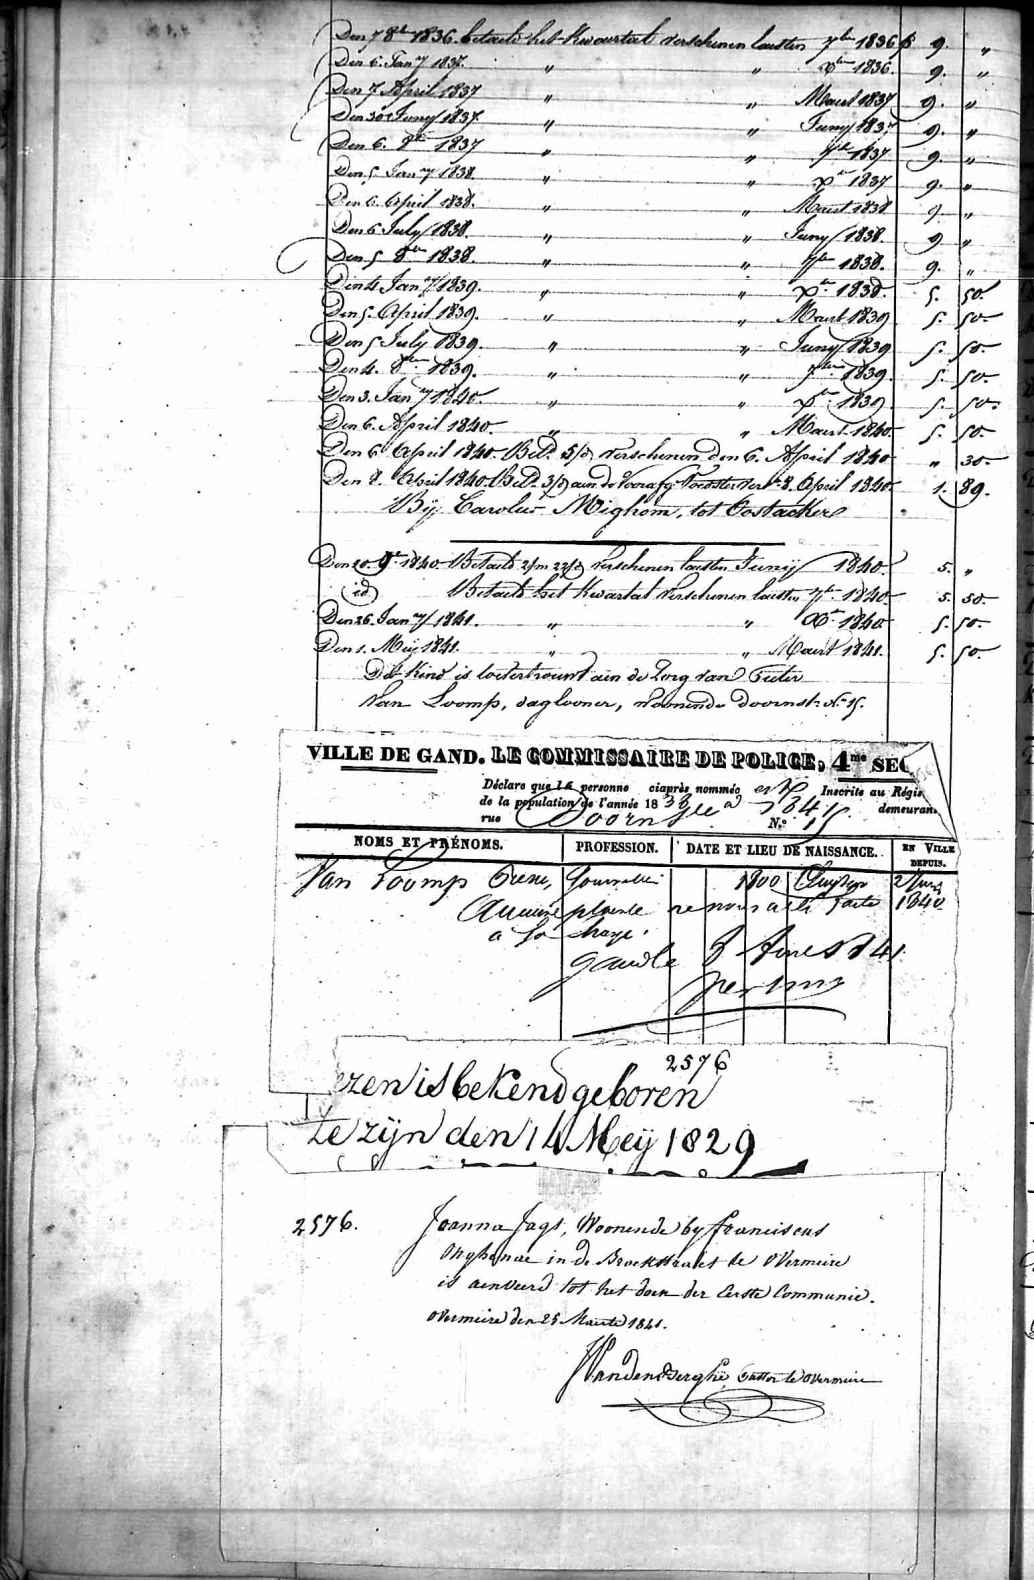 Den 7 8bre 1836. betaeld het kwartal verschenen laesten 7bre 1836 f 9. "
Den 6. Jany 1837. " " Xbre 1836. 9. "
Den 7 April 1837 " " Maert 1837 9. "
Den 30 Juny 1837. " " Juny 1837 9. "
Den 6. 8bre 1837 " " 7bre 1837 9. "
Den 5 Jany 1838. " " Xbre 1837 9. "
Den 6. April 1838. " " Maert 1838 9. "
Den 6 July 1838. " " Juny 1838. 9 "
Den 5 8bre 1838. " " 7bre 1838. 9. "
Den 4 Jany 1839. " " Xbre 1838. 5. 50.
Den 5. April 1839. " " Maert 1839 5. 50.
Den 5 July 1839. " " Juny 1839 5. 50.
Den 4. 8bre 1839. " " 7bre 1839. 5. 50.
Den 3. Jany 1840. " " Xbre 1839 5. 50.
Den 6. April 1840. " " Maert 1840. 5. 50.
Den 6 April 1840. Betd. 5/d verschenen den 6. April 1840 " 30.
Den 8. April 1840. Betd. aen de voorafg. Voedster 8. April 1840. 1. 89.
Bij Carolus Mighom, tot Oostacker
Den 20. 9bre 1840 Betaeld 2/m 22/d verschenen laesten Junij 1840. 5. "
id. Betaeld het kwartal verschenen laesten 7bre 1840. 5. 50.
Den 26. Jany 1841. " " Xbre 1840 5. 50.
Den 1. Meij 1841. " " Maert 1841. 5. 50.
Dit kind is toevertrouwt aen de Zorg van Pieter
Van Loomp, daglooner, Woonende Doornstr. No. 15.
VILLE DE GAND. LE COMMISSAIRE DE POLICE, 4me SEC
Déclare que la personne ciaprès nommée est Inscrite au Régis
de la population de l'année 1833 à 1841, demeurant
rue Doornstee N.º 15
NOMS ET PRÉNOMS. PROFESSION. DATE ET LIEU DE NAISSANCE. EN VILLE DEPUIS.
Van Loomp Pierre, Journalier 1800 2
Aucune plainte ne nous a été faite 1840
à sa charge.
Gand le 8 1841
2576
ezen is bekend geboren
te zijn den 14 Meij 1829
2576. Joanna Jags, Woonende by franciscus
Onghenae in de Broekstraet te Overmeire
is aenveerd tot het doen der Eerste Communie.
Overmeire den 25 Maerte 1841.
Vandenberghe Pastor te Overmeire